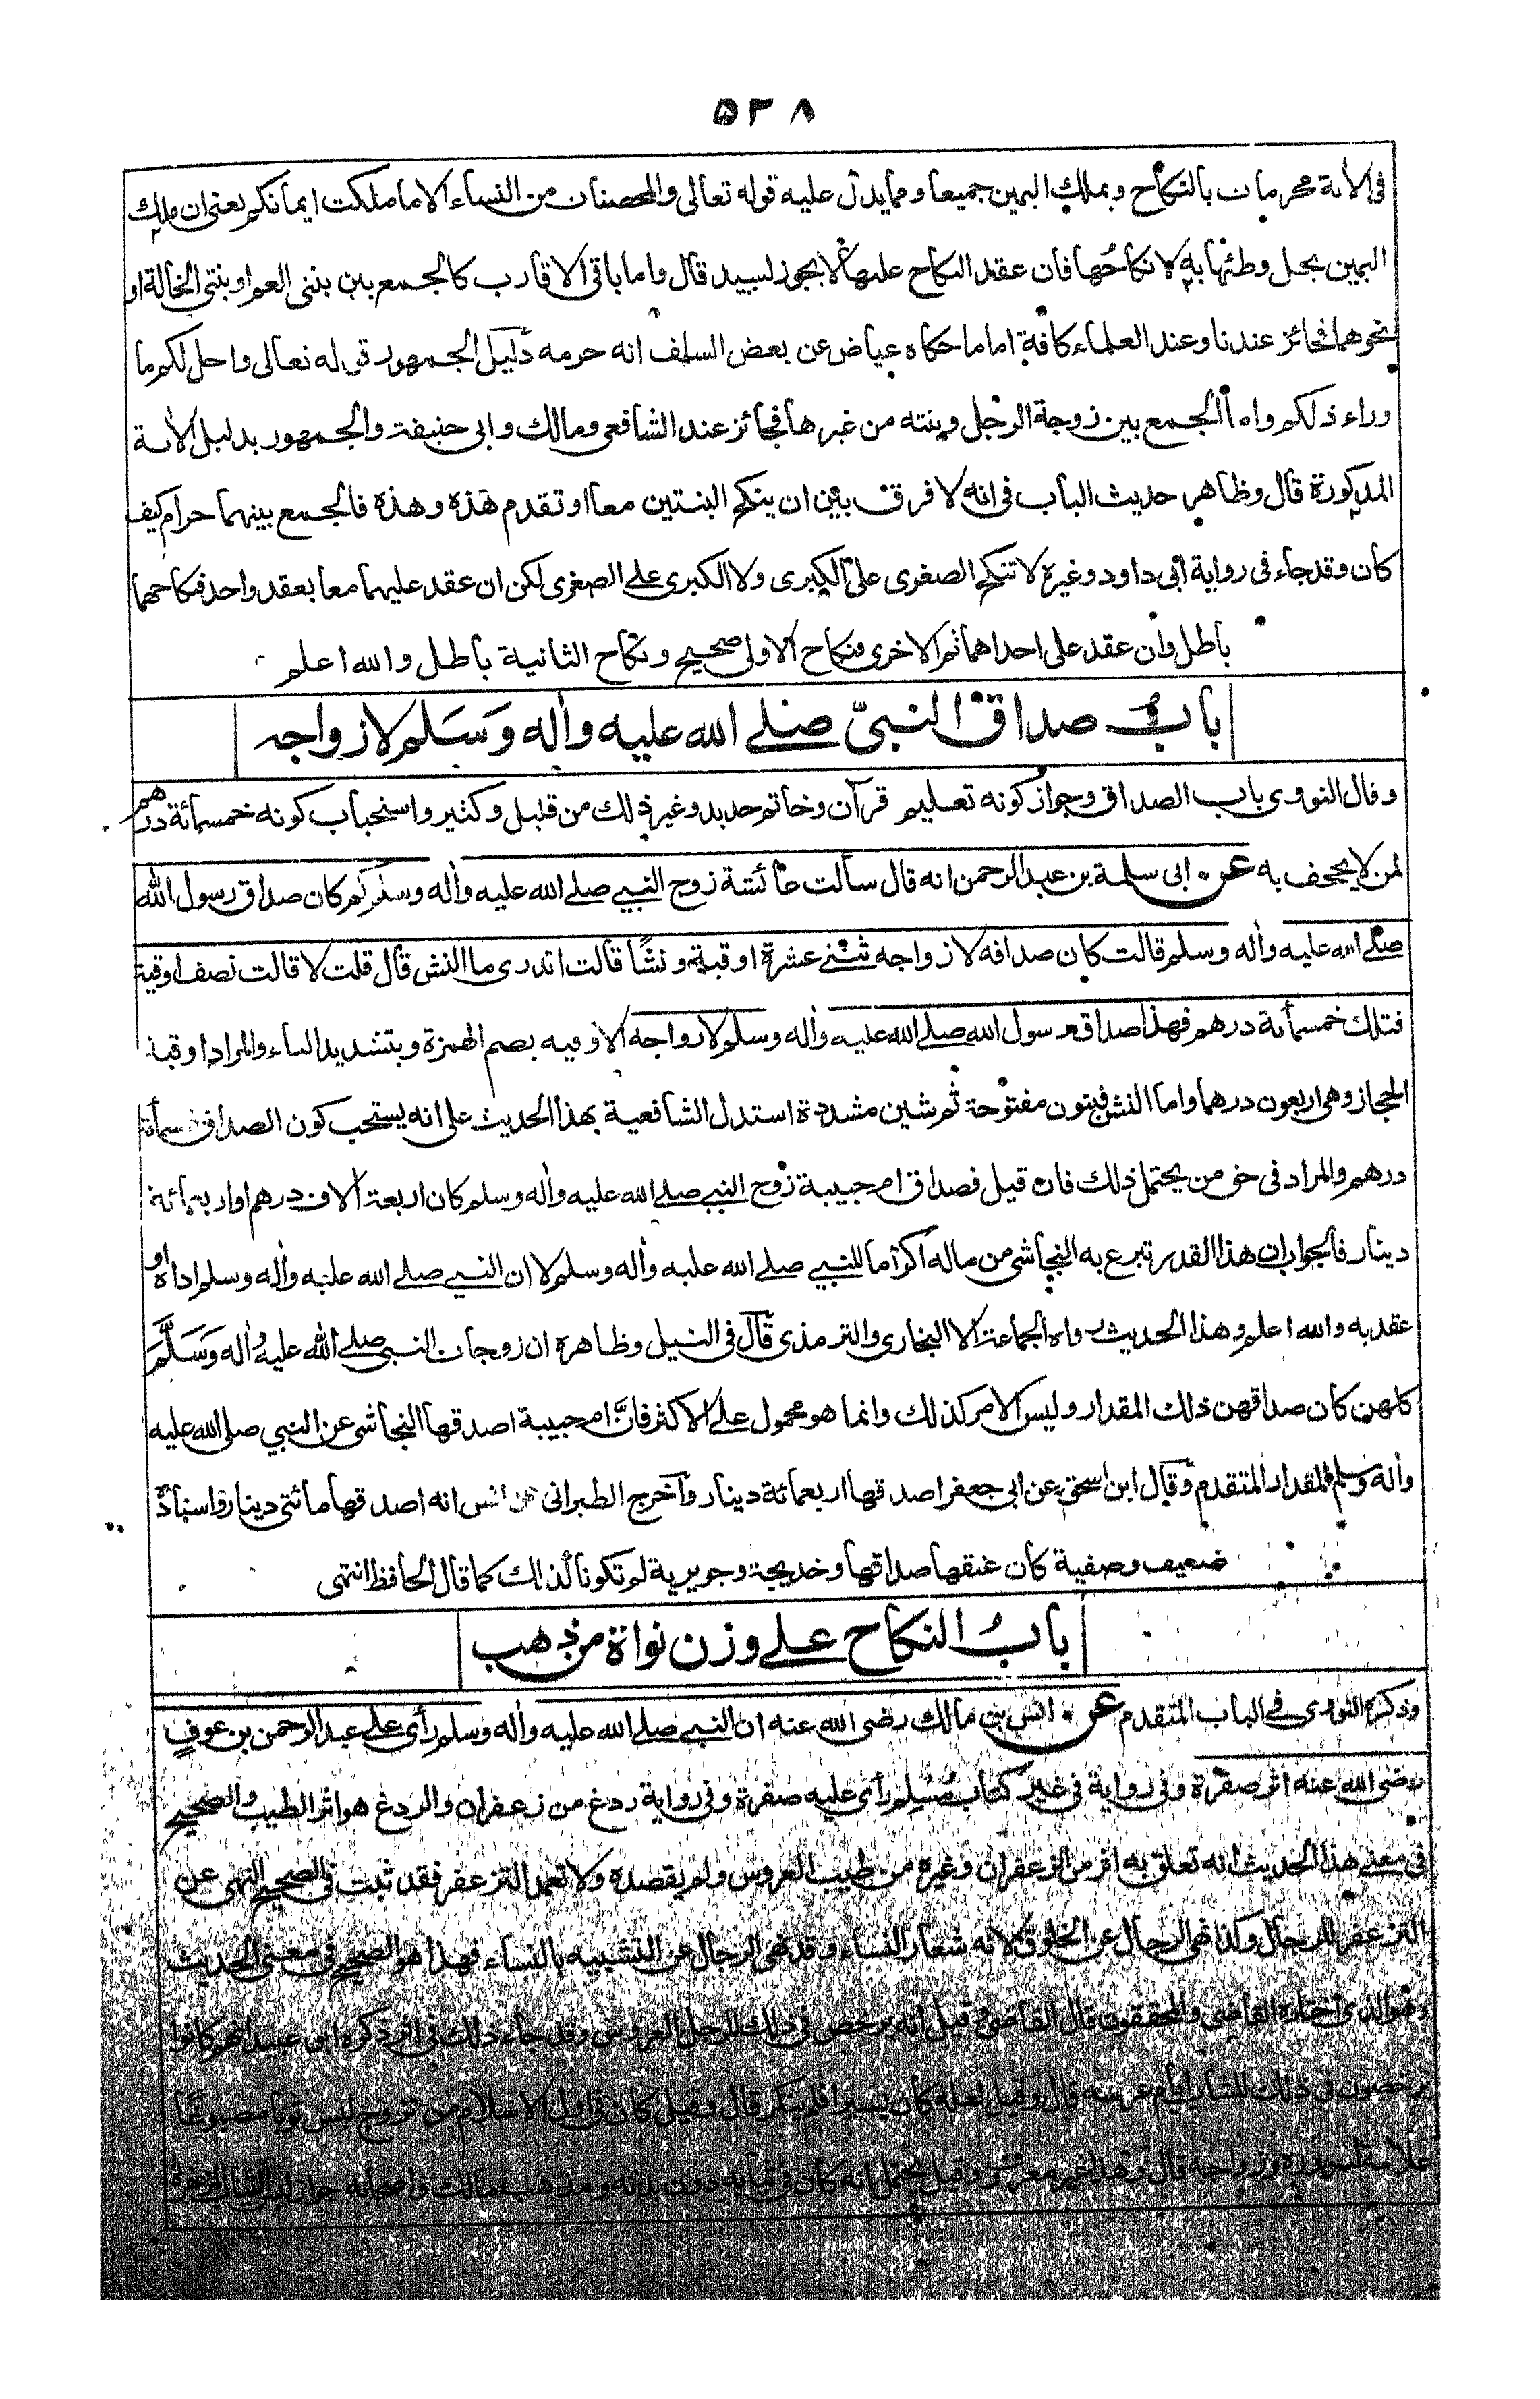 ٥٣٨
في الآية محرمات بالنكاح وبملك اليمين جميعا ومما يدل عليه قوله تعالى والمحصنات من النساء الا ما ملكت ايمانكم يعني ان ملك
اليمين يحل وطئها به لا نكاحها فان عقد النكاح عليها لا يجوز لسيد قال واما باقي الاقارب كالجمع بين بنتي العم او بنتي الخالة او
نحوهما فجائز عندنا وعند العلماء كافة اما ما حكاه عياض عن بعض السلف انه حرمه دليل الجمهور قوله تعالى واحل لكم ما
وراء ذلكم واما الجمع بين زوجة الرجل وبنته من غيرها فجائز عند الشافعي ومالك وابي حنيفة والجمهور بدليل الآية
المذكورة قال وظاهر حديث الباب في انه لا فرق بين ان ينكح البنتين معا او تقدم هذه وهذه فالجمع بينهما حرام كيف
كان وقد جاء في رواية ابي داود وغيره لا تنكح الصغرى على الكبرى ولا الكبرى على الصغرى لكن ان عقد عليهما معا بعقد واحد فنكاحهما
باطل وان عقد على احداهما ثم الاخرى فنكاح الاولى صحيح ونكاح الثانية باطل والله اعلم
باب صداق النبيّ صلے الله عليه واٰله وَسَلم لازواجه
وقال النووي باب الصداق وجواز كونه تعليم قرآن وخاتم حديد وغير ذلك من قليل وكثير واستحباب كونه خمسمائة درهم
لمن لا يجحف به عن ابي سلمة بن عبد الرحمن انه قال سألت عائشة زوج النبي صلے الله عليه واٰله وسلم كم كان صداق رسول الله
صلے الله عليه واٰله وسلم قالت كان صداقه لازواجه ثنتي عشرة اوقية ونشًا قالت اتدري ما النش قال قلت لا قالت نصف اوقية
فتلك خمسمائة درهم فهذا صداق رسول الله صلے الله عليه واٰله وسلم لازواجه الاوقيه بضم الهمزة وبتشديد الياء والمراد اوقية
الحجاز وهي اربعون درهما واما النش فبنون مفتوحة ثم شين مشددة استدل الشافعية بهذا الحديث على انه يستحب كون الصداق خمسمأة
درهم والمراد في حق من يحتمل ذلك فان قيل فصداق ام حبيبة زوج النبي صلے الله عليه واٰله وسلم كان اربعة الاف درهم او اربعمائة
دينار فالجواب ان هذا القدر تبرع به النجاشي من ماله اكراما للنبي صلے الله عليه واٰله وسلم لا ان النبي صلے الله عليه واٰله وسلم اداه او
عقد به والله اعلم وهذا الحديث رواه الجماعة الا البخاري والترمذي قال في النيل وظاهره ان زوجات النبي صلے الله عليه واٰله وَسَلَّمَ
كلهن كان صداقهن ذلك المقدار وليس الامر كذلك وانما هو محمول علے الاكثر فانَّ ام حبيبة اصدقها النجاشي عن النبي صلى الله عليه
واٰله وسلم المقدار المتقدم وقال ابن اسحق عن ابي جعفر اصدقها اربعمائة دينار وآخرج الطبراني عن انس انه اصدقها مائتي دينار واسناده
ضعيف وصفية كان عتقها صداقها وخديجة وجويرية لم تكونا كذلك كما قال الحافظ انتهى
بابُ النكاح علے وزن نواة من ذهب
وذكره النووي في الباب المتقدم عن انس بن مالك رضي الله عنه ان النبي صلے الله عليه واٰله وسلم رأى علے عبد الرحمن بن عوف
رضي الله عنه اثر صفرة وفي رواية في غير كتاب مُسْلِم رأى عليه صفرة وفي رواية ردغ من زعفران والردغ هو اثر الطيب والصحيح
في معنے هذا الحديث انه تعلق به اثر من الزعفران وغيره من طيب العروس ولم يقصده ولا تعمد التزعفر فقد ثبت في الصحيح النهي عن
التزعفر للرجال وكذا نهي الرجال عن الخلوق لانه شعار النساء وقد نهي الرجال عن التشبيه بالنساء فهذا هو الصحيح في معنى الحديث
وهو الذي اختاره القاضي والمحققون قال القاضي وقيل انه يرخص في ذلك للرجل العروس وقد جاء ذلك في اثر ذكره ابو عبيد انهم كانوا
يرخصون في ذلك للشاب ايام عرسه قال وقيل لعله كان يسيرا فلم ينكر قال وقيل كان في اول الاسلام من تزوج لبس ثوبا مصبوغًا
علامة لسروره وزواجه قال وهذا غير معروف وقيل يحتمل انه كان في ثيابه دون بدنه ومذهب مالك واصحابه جواز لبس الثياب المزعفرة